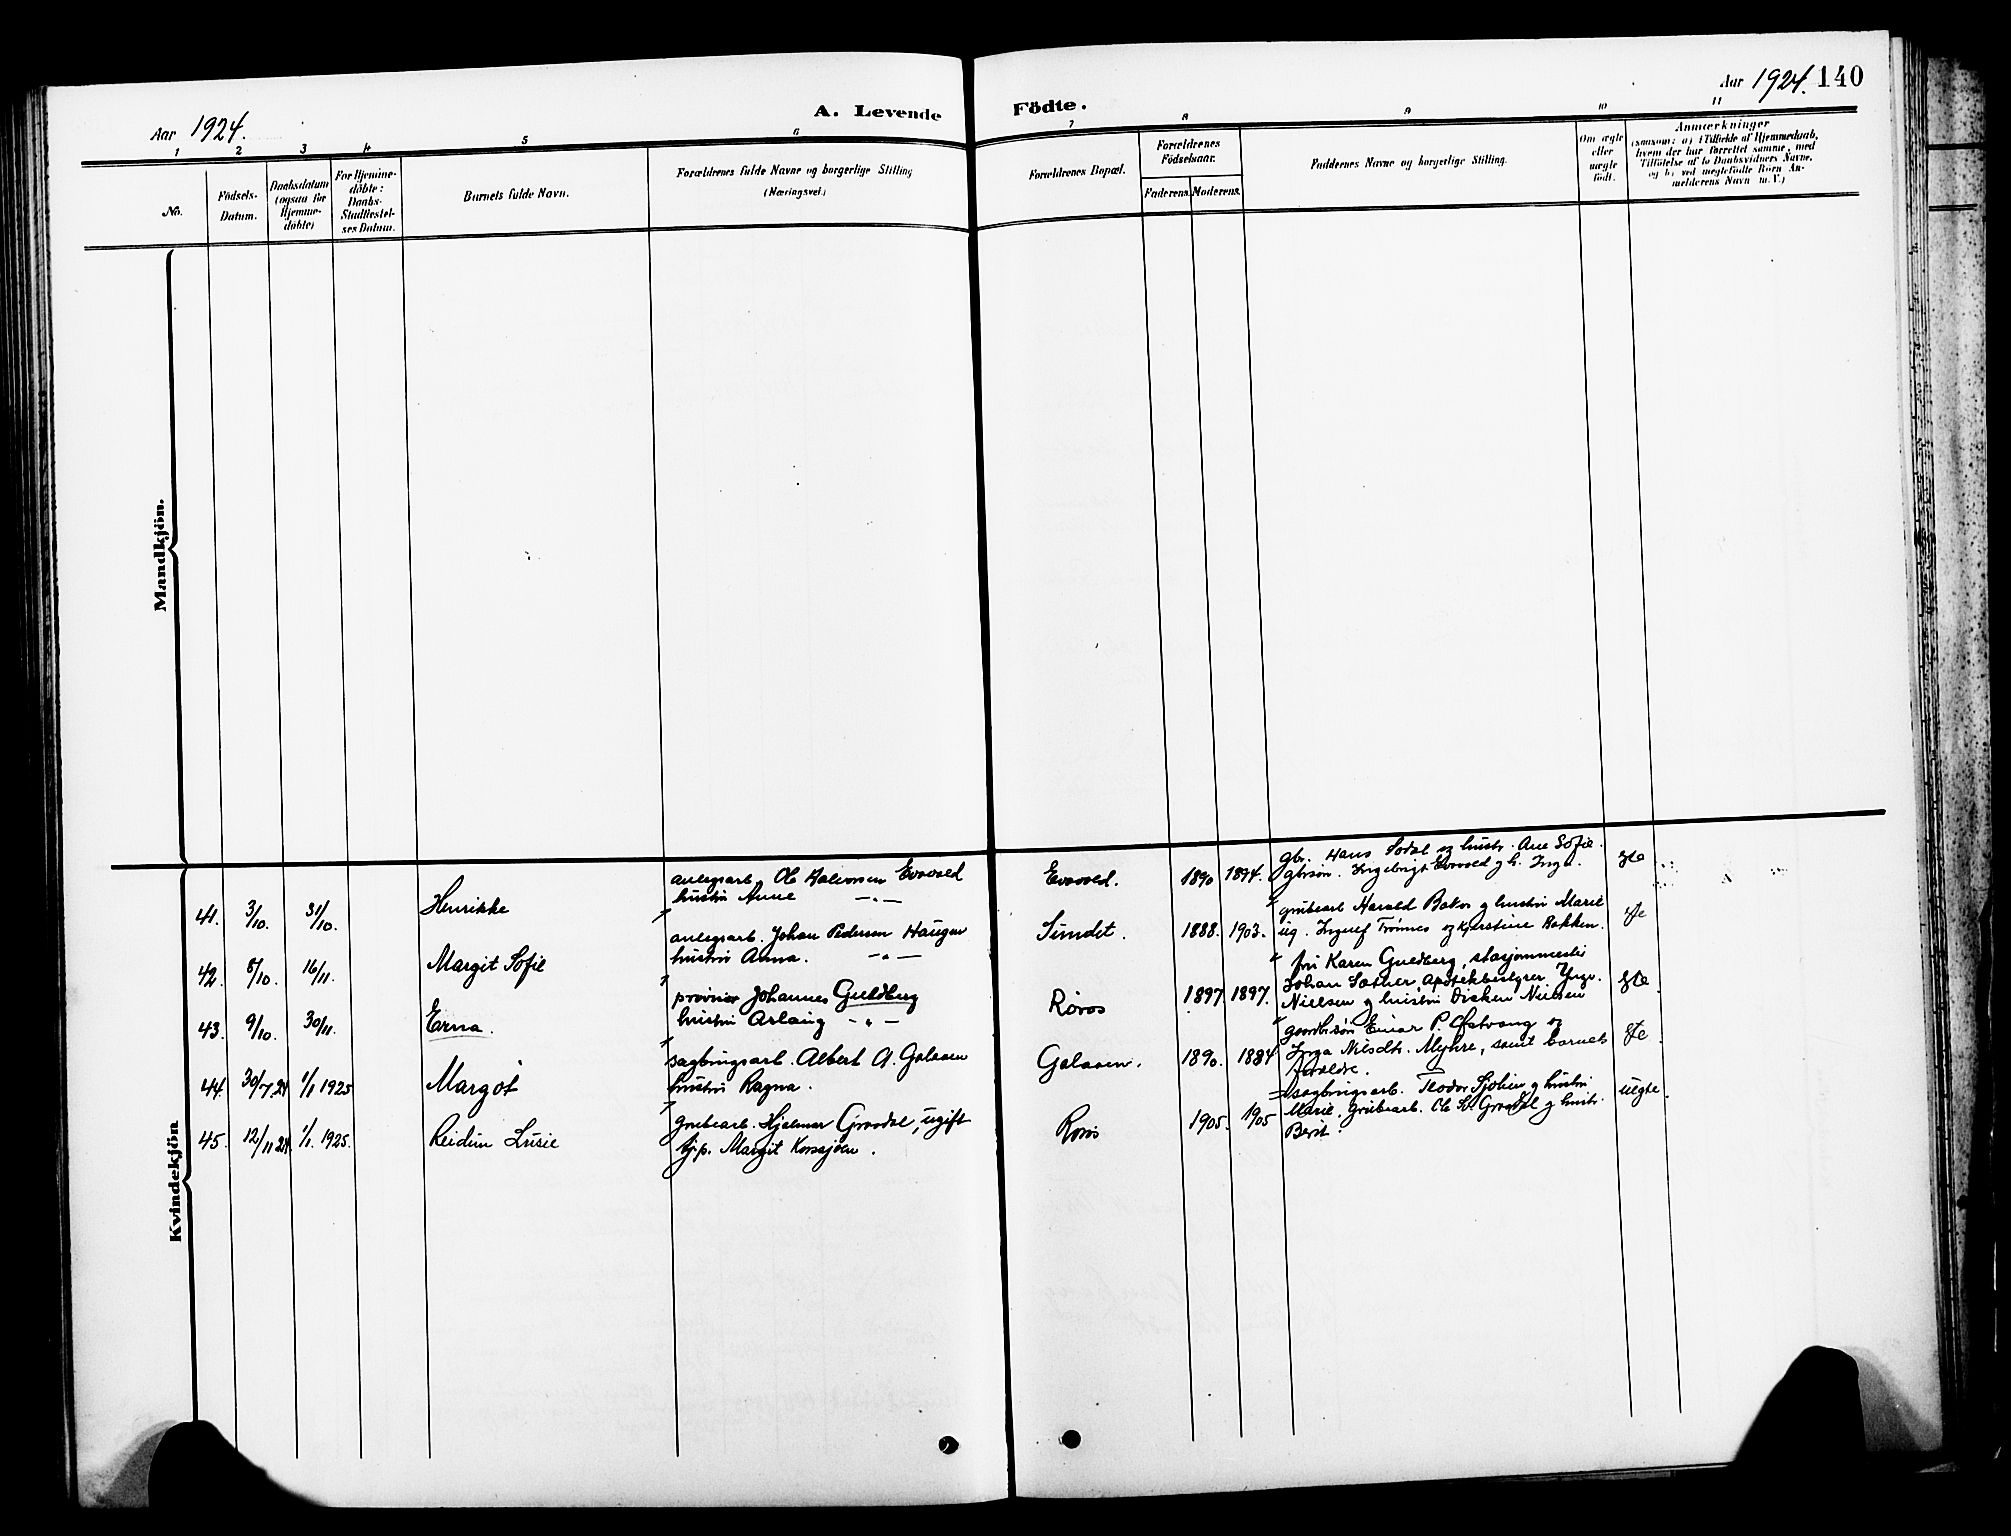 Aar 1924.
A. Levende
Födte.
Aar 1924. 140
1 2 3 4 5 6
7 8 9 10 11
No.
Födsels-
Datum.
Daabsdatum
(ogsaa for
Hjemme-
döbte)
For Hjemme-
döbte:
Daabs-
Stadfæstel-
ses Datum.
Barnets fulde Navn.
Forældrenes fulde Navne og borgerlige Stilling
(Næringsvei.)
Forældrenes Bopæl.
Forældrenes
Födselsaar.
Faderens. Moderens.
Faddernes Navne og borgerlige Stilling.
Om ægte
eller
uægte
födt.
Anmærkninger
(saasom: a) i Tilfælde af Hjemmedaab,
hvem der har forrettet samme, med
Tilföielse af to Daabsvidners Navne,
og b) ved uægtefödte Börn An-
melderens Navn m. V.)
Mandkjön.
Kvindekjön
41. 3/10. 31/10. Henrikke
anlegsarb. Ole Halvorsen Evavold
hustru Anne —"—
Evavold. 1890 1894.
gbr. Hans Sodal og hustr. Ane Sofie.
gbrsøn. Ingebrigt Evavold og h. Inga.
ekte
42. 8/10. 16/11. Margit Sofie
anlegsarb. Johan Pedersen Haugen
hustru Anna. —"—
Sundet. 1888. 1903.
grubearb Harald Bakos og hustru Marie
ug. Ingulf Trønnes og Kjerstine Bakken.
ekte
43. 9/10. 30/11. Erna.
provisor Johannes Guldberg
hustru Aslaug —"—
Røros 1897 1897.
fru Karen Guldberg, stasjonmester
Johan Sæther, Apotekbestyrer Yngv.
Nielsen og hustru Dicken Nielsen
ekte
44. 30/7.24 1/1 1925 Margot
sagbrugsarb. Albert A. Galaaen
hustru Ragna.
Galaaen. 1890. 1884
gaardbr.søn Einar P. Østvang og
Inga Nilsdtr. Myhre, samt barnets
foreldre.
ekte
45. 12/11 24. 1/1. 1925. Reidun Lusie
grubearb. Hjalmar Graadal, ugift
tj.p. Margit Korssjøen.
Røros 1905. 1905
sagbrugsarb. Teodor Sjølien og hustru
Marie, grubearb. Ole Graadal og hustr.
Berit.
uegte.